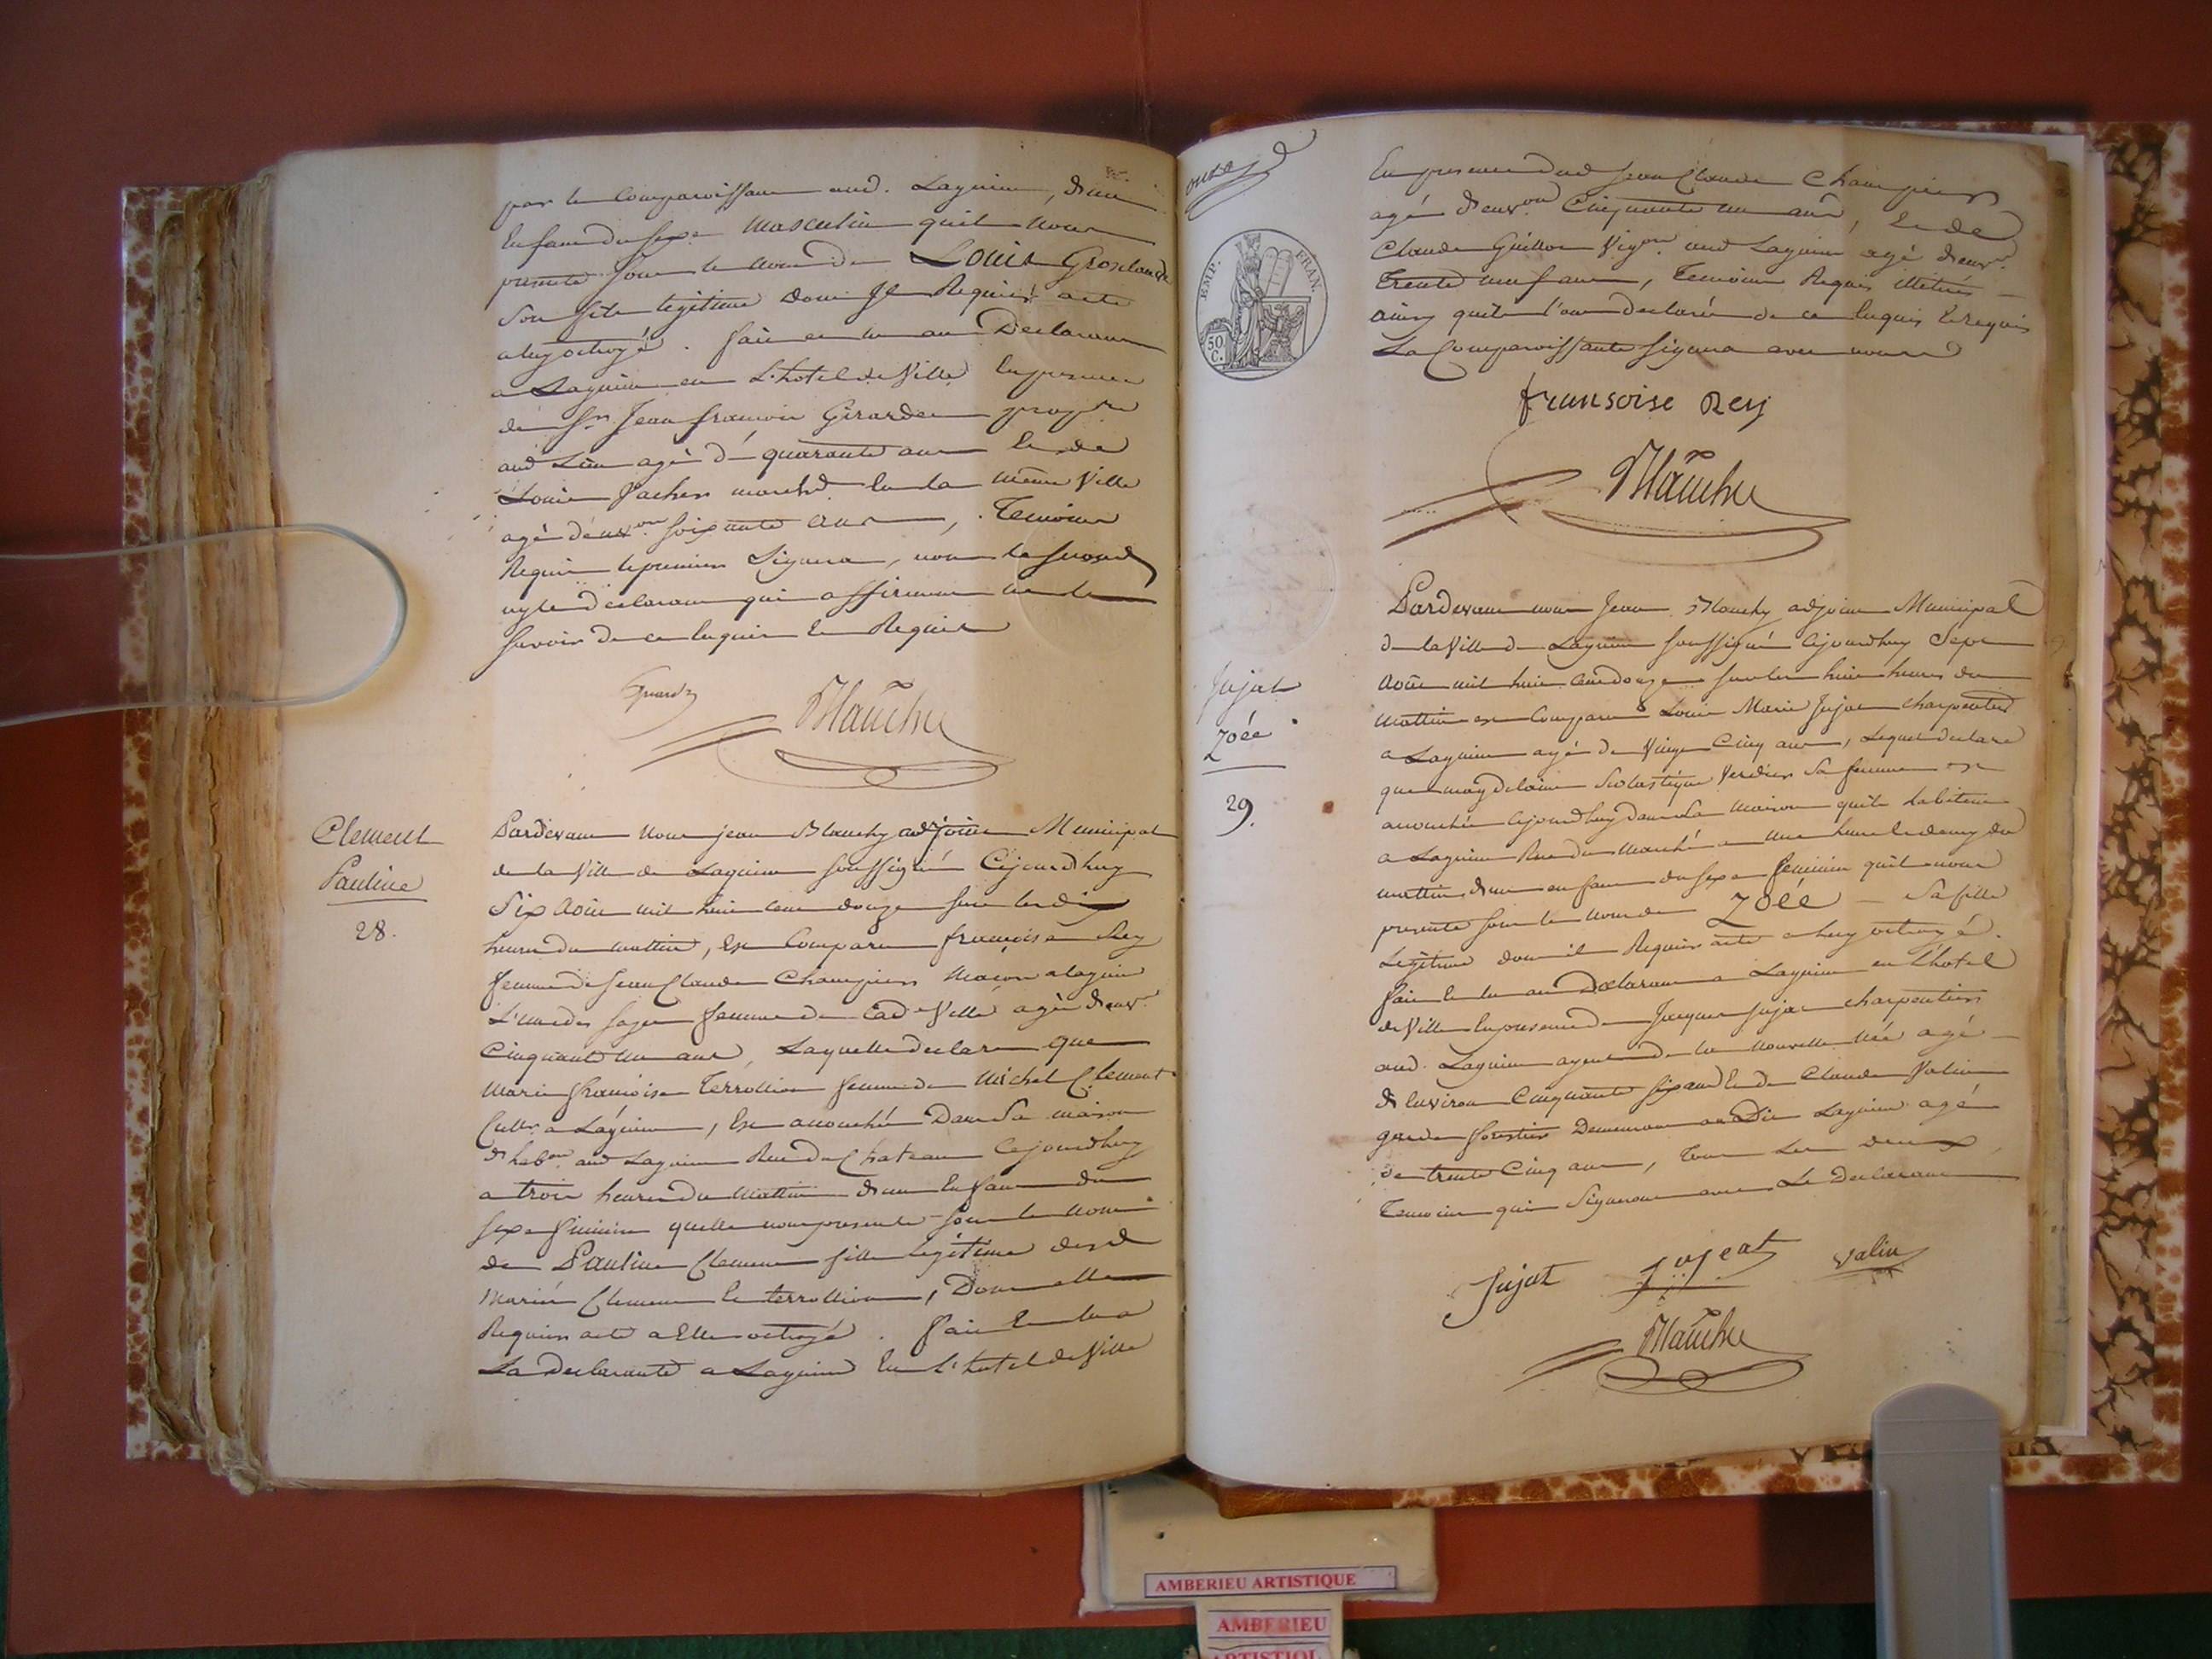 par le comparoissant aud. Lagnieu, d'un
Enfant du sexe masculin quil nous
presente sous le nom de Louis Grosclaude
son fils legitime dont Il Requiert acte
a luy octroyé. fait et lu au Declarant
a Lagnieu en L'hotel de Ville En presence
de Sr Jean francois Girardet prop.re
aud Lieu agé de quarante ans Et de
Louis Vacher march.d En la même Ville
agé d'env.on soixante ans, Temoins
Requis le premier Signera, non le second
ny le declarant qui affirment ne le
savoir de ce Enquis Et Requis
Girardet
Blanchy
Clement
Pauline
28.
Pardevant Nous jean Blanchy adjoint Municipal
de la Ville de Lagnieu soussigné Cejourdhuy
Six Août mil huit cent douze sur les dix
heures du mattin, Est Comparu françoise Rey
femme de Jean Claude Champier Maçon a lagnieu
L'une des sages femmes de Lad.e Ville agée d'env.
Cinquante un ans, Laquelle declare que
Marie françoise Terrollion femme de Michel Clement
Cult.r a Lagnieu, Est accouchée Dans Sa maison
d'hab.on aud Lagnieu Rue du Chateau Cejourdhuy
a trois heures du Mattin d'un Enfant du
sexe feminin quelle nous presente sous le nom
de Pauline Clement fille legitime desd
Mariés Clement Et terrollion, Dont elle
Requiert acte a Elle octroyé. fait Et lu a
La declarante a Lagnieu En L'hotel de Ville
onze
EMP. FRAN.
50 C.
En presence dud Jean Claude Champier
agé d'env.on Cinquante un ans, Et de
Claude Guillot Vig.on aud Lagnieu agé d'env.
Trente neuf ans, Temoins Requis illitérés
ainsy quils l'ont declaré de ce Enquis Et requis
La Comparoissante signera avec nous
fransoise Rey
Blanchy
Jujat
Zoée
29.
Pardevant nous Jean Blanchy adjoint Municipal
de la Ville de Lagnieu soussigné Cejourdhuy Sept
Août mil huit Cent douze sur les huit heures du
Mattin est Comparu Louis Marie Jujat charpentier
a Lagnieu agé de Vingt Cinq ans, Lequel declare
que magdelaine Scolastique Verdier sa femme est
accouchée Cejourdhuy dans la Maison quils habitent
a Lagnieu Rue du Marché a une heure Et demy du
mattin d'un enfant du sexe feminin quil nous
presente sous le nom de Zoée sa fille
Legitime dont il Requiert acte a luy octroyé.
fait Et lu au Declarant a Lagnieu en L'hotel
de Ville En presence de Jacques Jujat charpentier
aud. Lagnieu ayeul de la Nouvelle Née agé
d'Environ Cinquante six ans Et de Claude Valin
garde forestier Demeurant au Dit Lagnieu agé
de trente Cinq ans, tous Les deux
Temoins qui Signeront avec Le Declarant
Jujat Jujeat valin
Blanchy
AMBERIEU ARTISTIQUE
AMBERIEU